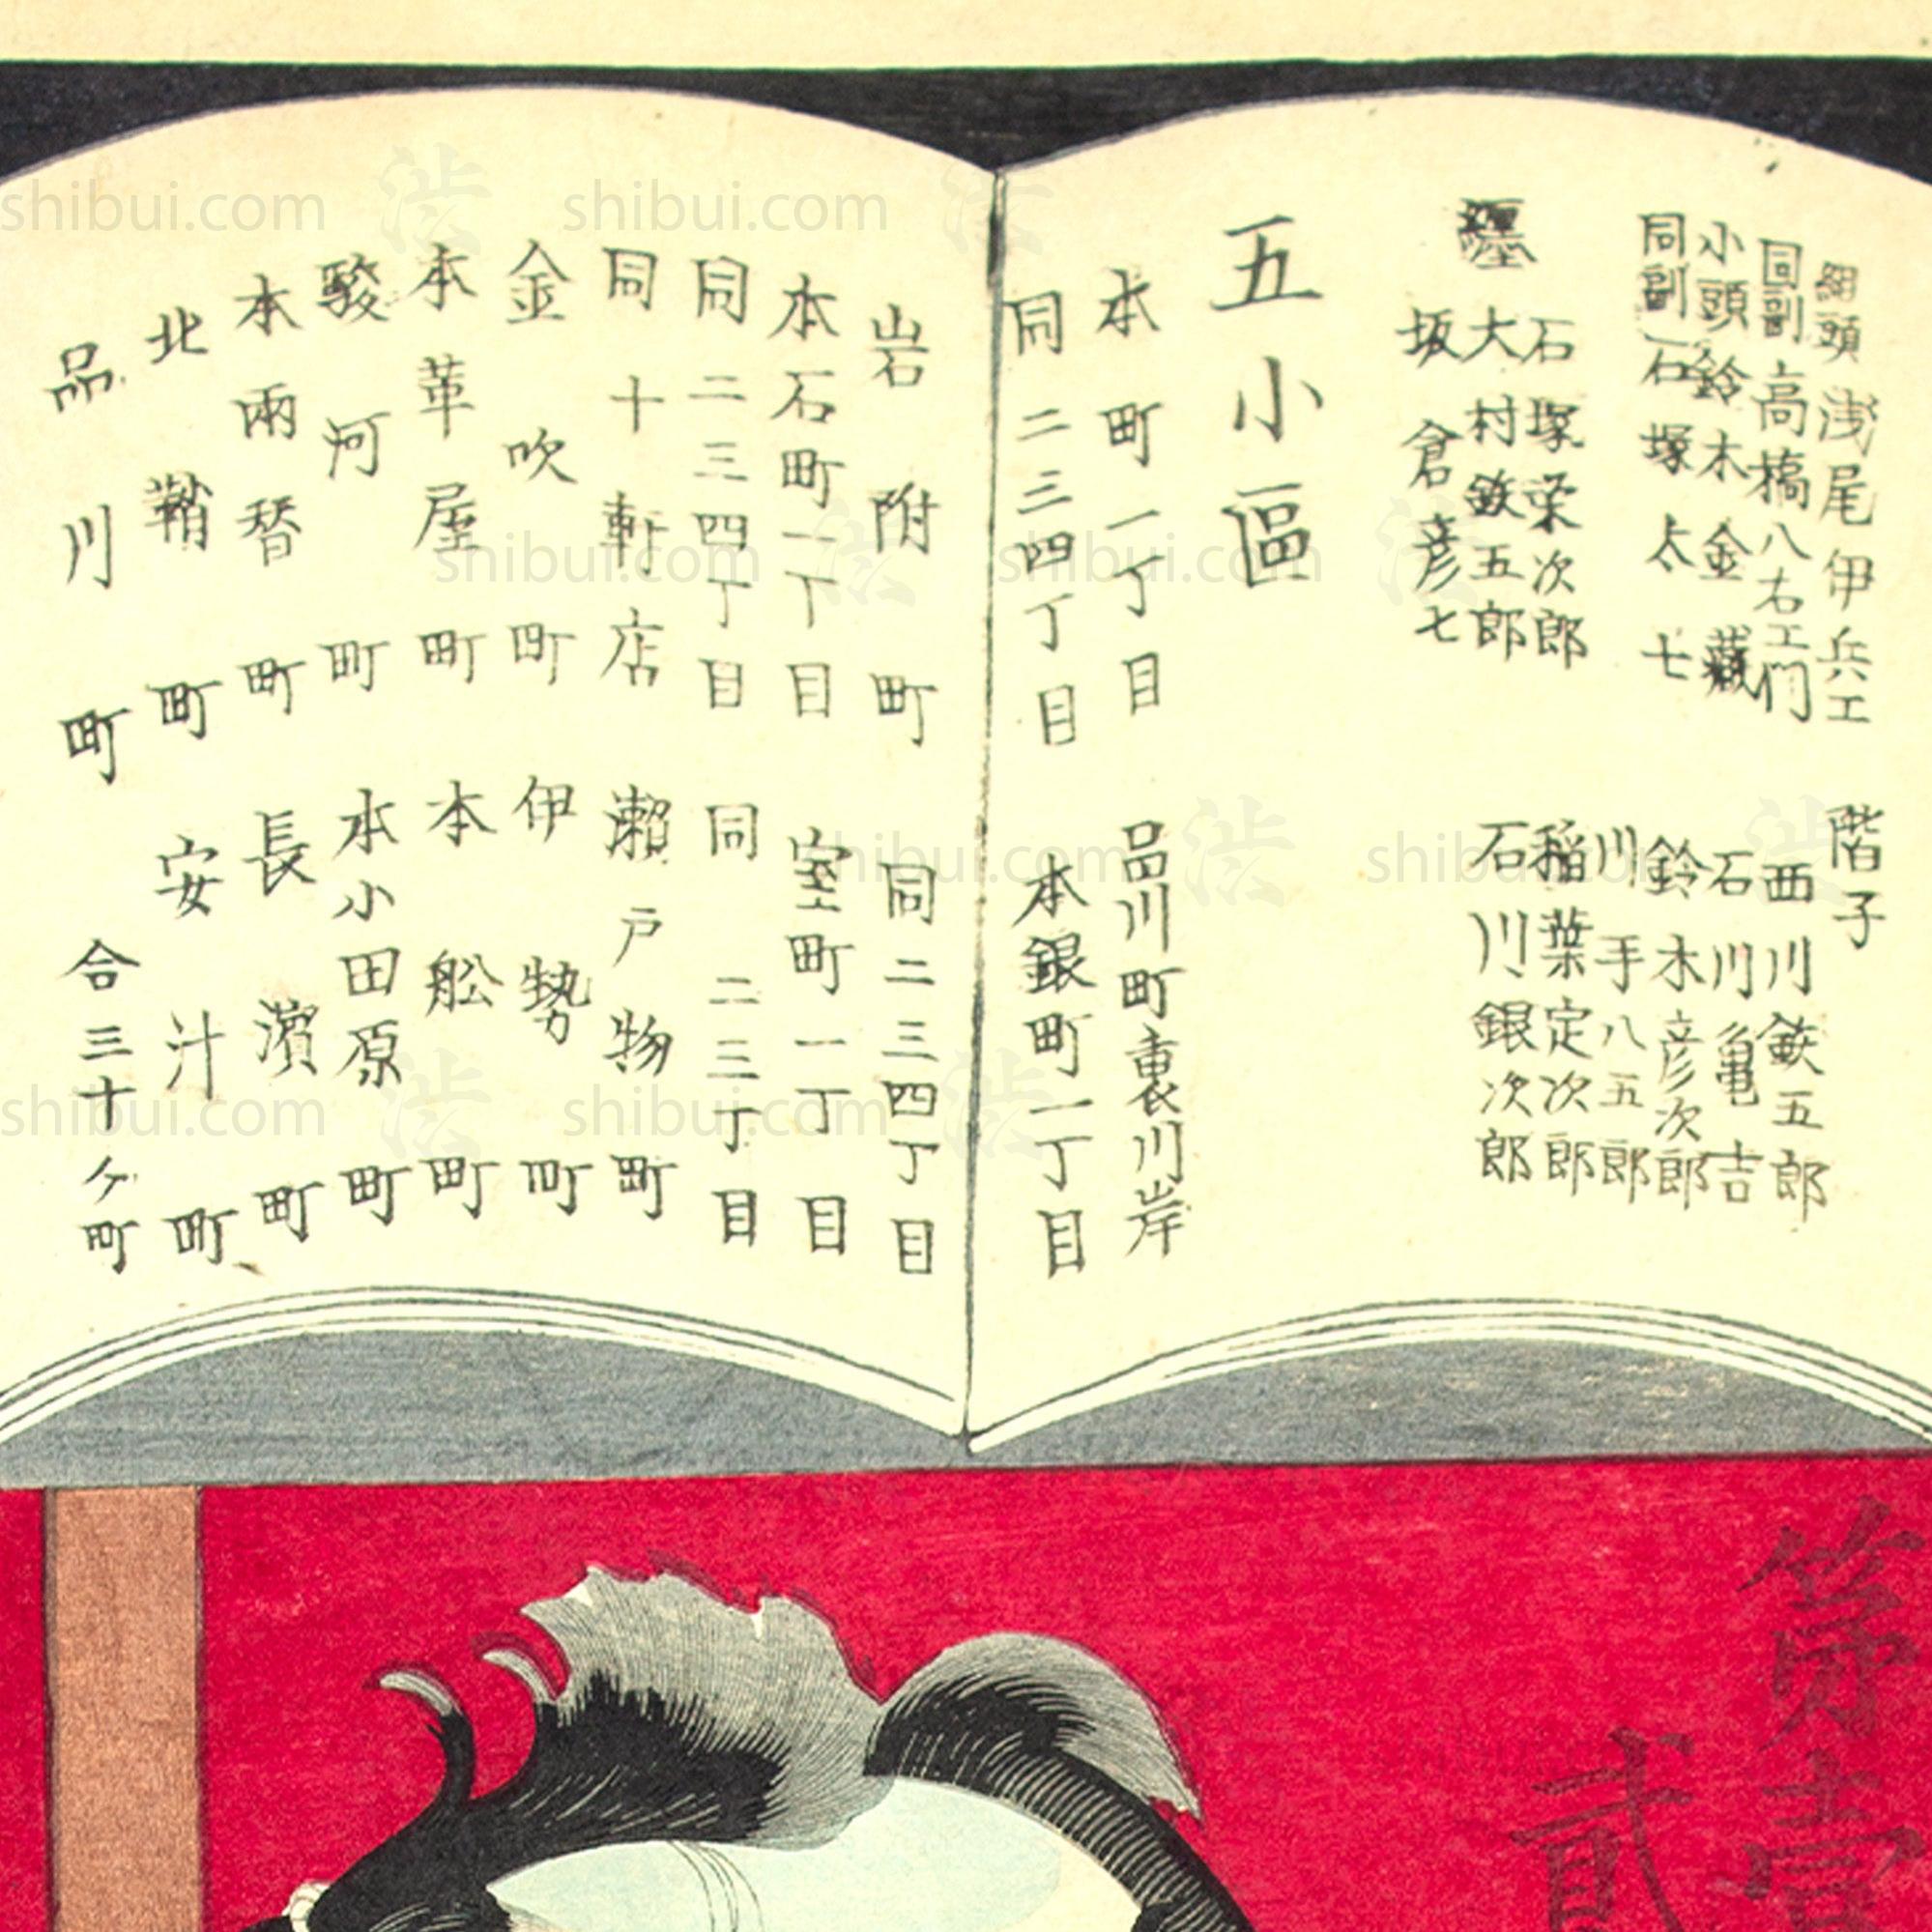 組頭 浅尾伊兵エ
同副 高橋八右エ門
小頭 鈴木金藏
同副 石塚太七
纒
石塚栄次郎
大村鉄五郎
坂倉彦七
階子
西川鉄五郎
石川亀吉
鈴木彦次郎
川手八五郎
稲葉定次郎
石川銀次郎
五小區
本町一丁目 品川町裏川岸
同二三四丁目 本銀町一丁目
岩附町 同二三四丁目
本石町一丁目 室町一丁目
同二三四丁目 同二三丁目
同十軒店 瀬戸物町
金吹町 伊勢町
本革屋町 本舩町
駿河町 本小田原町
本兩替町 長濱町
北鞘町 安汁町
品川町 合三十ケ町
第壹
貳
shibui.com
shibui.com
shibui.com
shibui.com
shibui.com
shibui.com
shibui.com
shibui.com